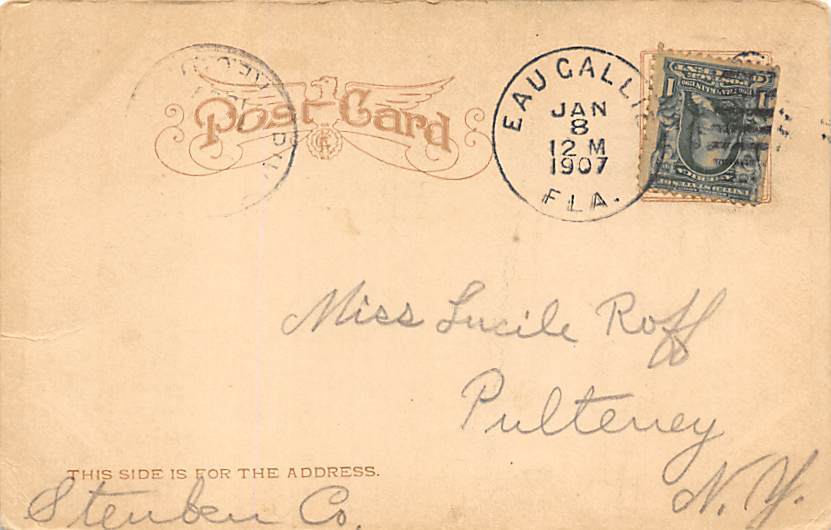 Post Card
EAU GALLIE
JAN
8
12 M
1907
FLA.
Miss Lucile Roff
Pulteney
N. Y.
THIS SIDE IS FOR THE ADDRESS.
Steuben Co.